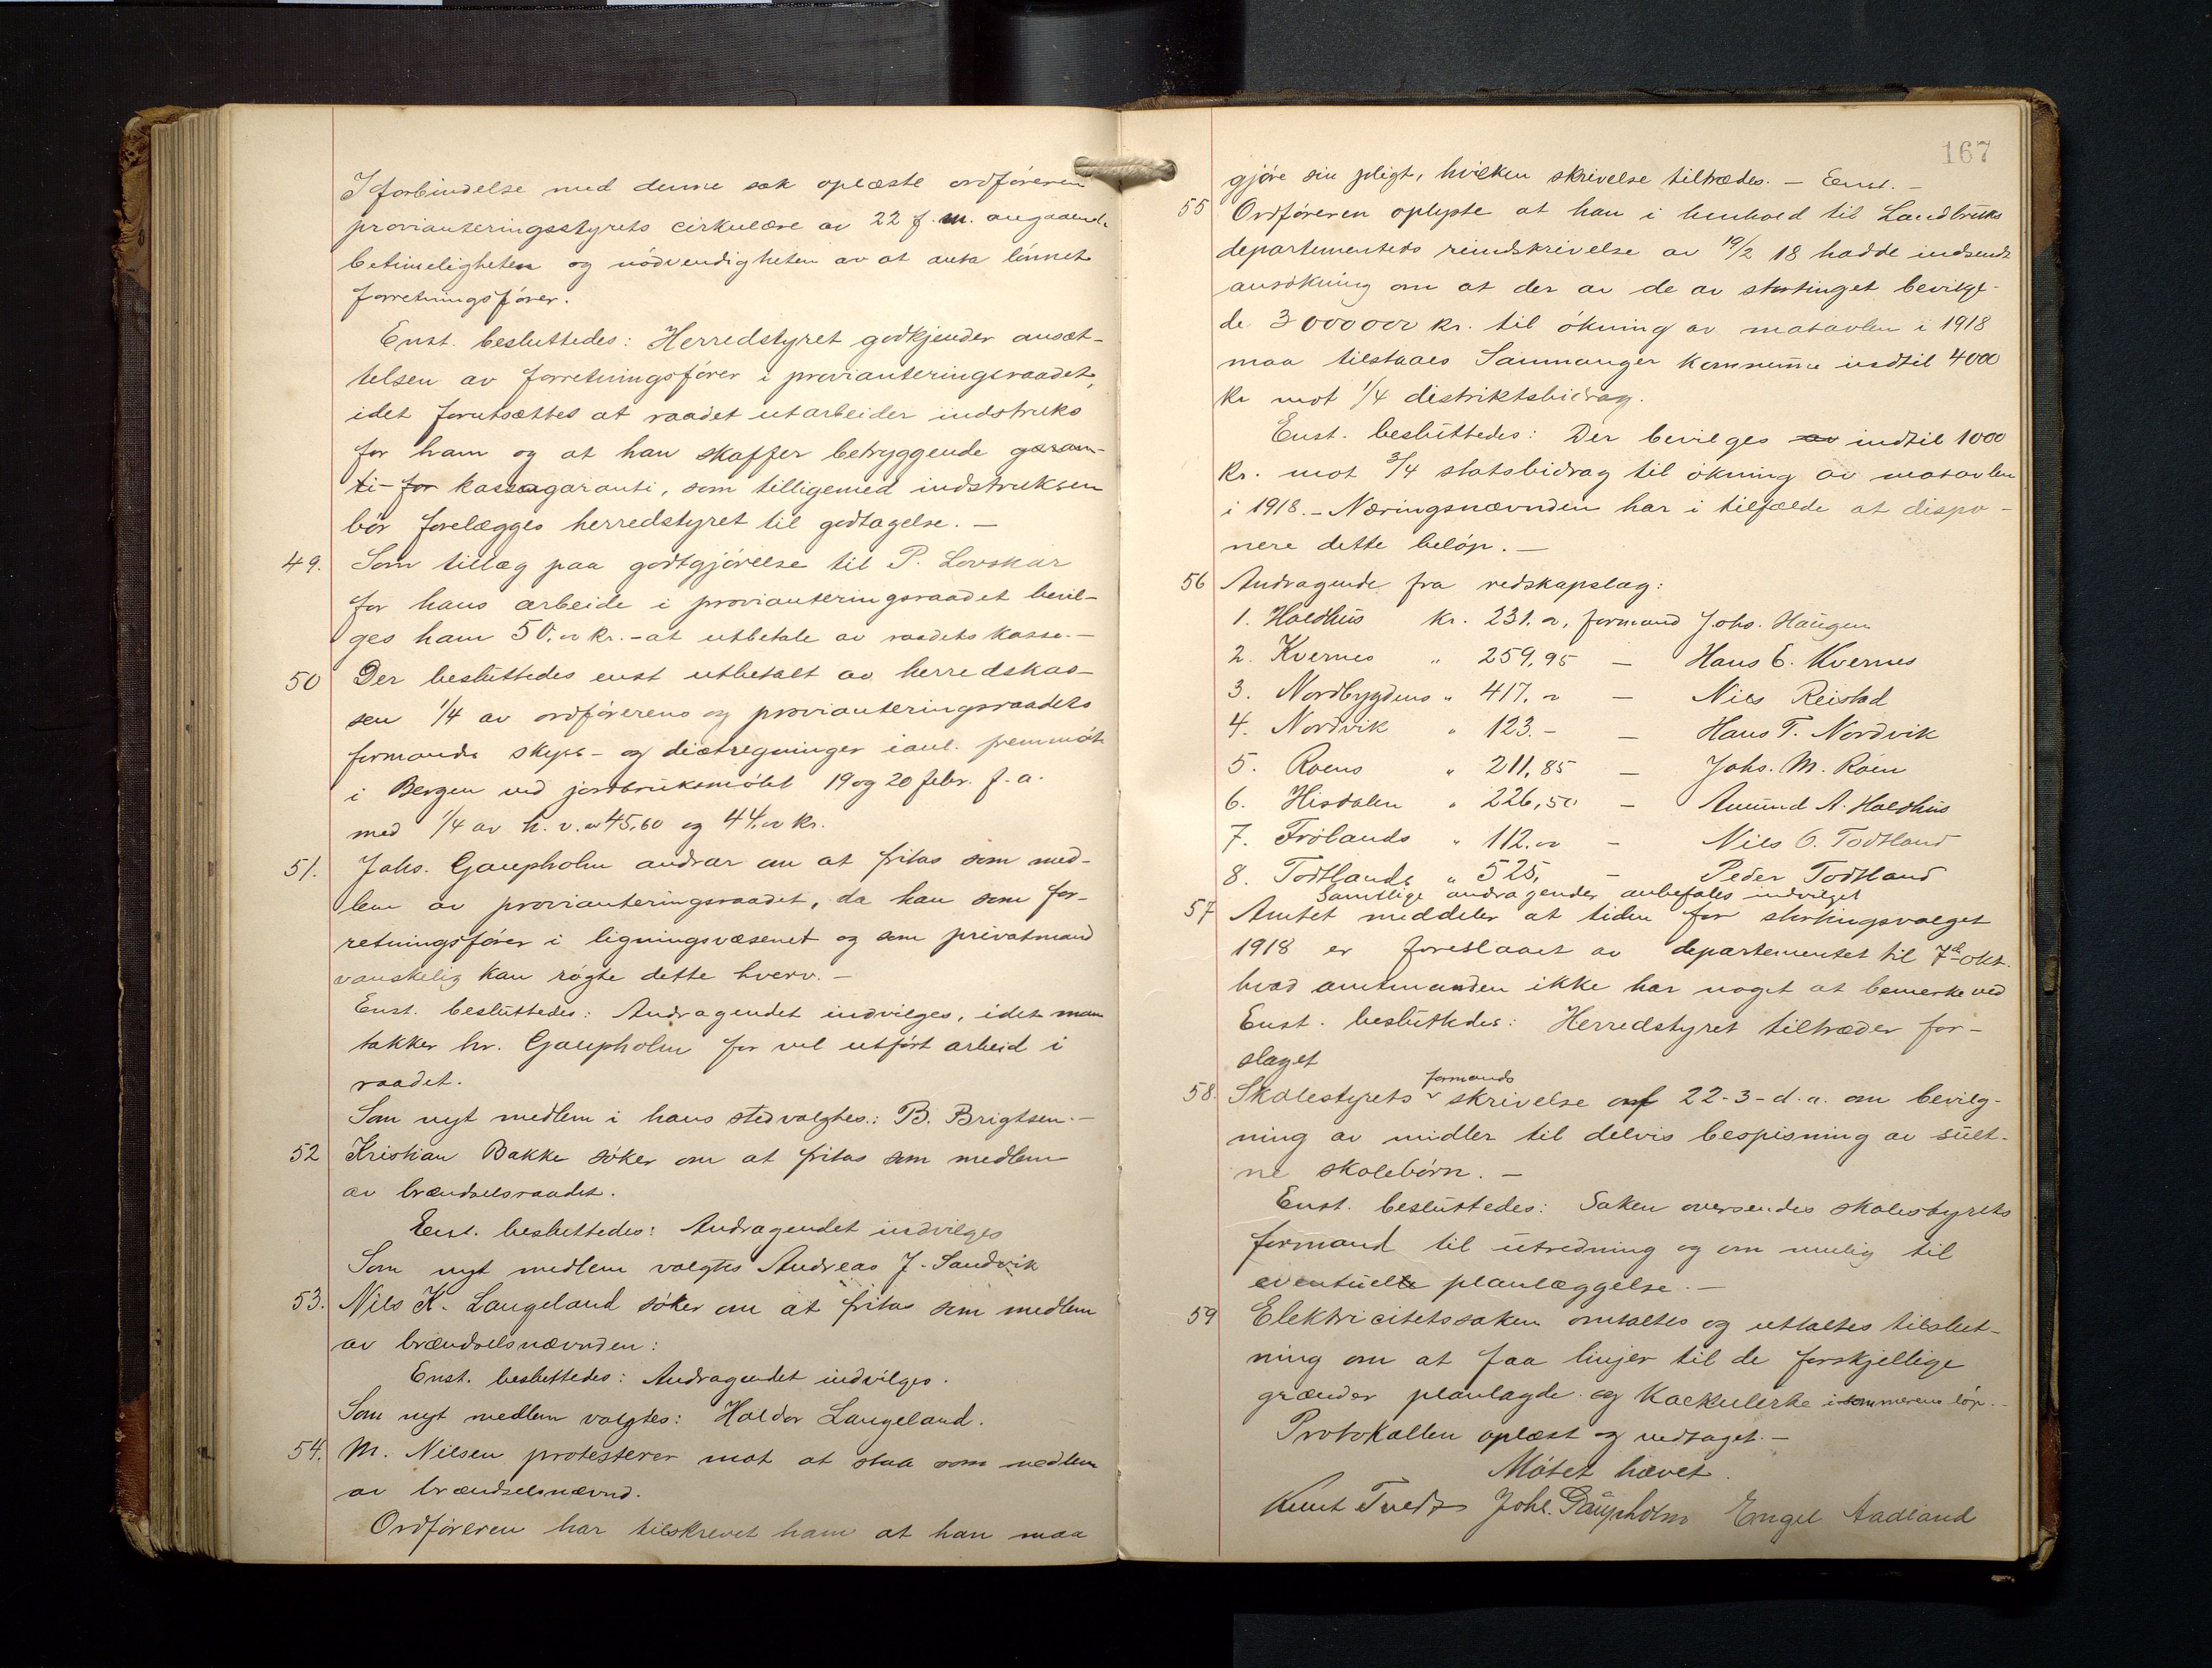 I forbindelse med denne sak oplæste ordføreren
provianteringsstyrets cirkulære av 22 f. m. angaaende
betimeligheten og nödvendigheten av at anta lönnet
forretningsfører.
Enst. besluttedes: Herredstyret godkjender ansæt-
telsen av forretningsfører i provianteringsraadet,
idet forutsættes at raadet utarbeider indstruks
for ham og at han skaffer betryggende garan-
ti for kassagaranti, som tilligemed indstruksen
bör forelægges herredstyret til godtagelse. —
49. Som tillæg paa godtgjörelse til P. Lovskar
for hans arbeide i provianteringsraadet bevil-
ges ham 50,oo kr. - at utbetale av raadets kasse. —
50 Der besluttedes enst utbetalt av herredskas-
sen 1/4 av ordförerens og provianteringsraadets
formands skyss- og diætregninger ianl. fremmöte
i Bergen ved jordbruksmötet 19 og 20 febr. f. a.
med 1/4 av h. v. 45,60 og 44,oo kr.
51. Johs. Gaupholm andrar om at fritas som med-
lem av provianteringsraadet, da han som for-
retningsförer i ligningsvæsenet og som privatmand
vanskelig kan rögte dette hverv. —
Enst. besluttedes: Andragendet indvilges, idet man
takker hr. Gaupholm for vel utfört arbeid i
raadet.
Som nyt medlem i hans sted valgtes: B. Brigtsen. —
52 Kristian Bakke söker om at fritas som medlem
av brændselsraadet.
Enst. besluttedes: Andragendet indvilges
Som nyt medlem valgtes Andreas J. Sandvik
53. Nils K. Langeland söker om at fritas som medlem
av brændselsnævnden:
Enst. besluttedes: Andragendet indvilges.
Som nyt medlem valgtes: Haldor Langeland.
54. M. Nilsen protesterer mot at staa som medlem
av brændselsnævnd.
Ordföreren har tilskrevet ham at han maa
167
gjöre sin pligt, hvilken skrivelse tiltrædes. — Enst. —
55 Ordföreren oplyste at han i henhold til Landbruks
departementets rundskrivelse av 19/2 18 hadde indsendt
ansökning om at der av de av stortinget bevilge-
de 3000000 kr. til ökning av matavlen i 1918
maa tilstaaes Samnanger kommune indtil 4000
kr mot 1/4 distriktsbidrag.
Enst. besluttedes: Der bevilges av indtil 1000
kr. mot 3/4 statsbidrag til ökning av matavlen
i 1918. — Næringsnævnden har i tilfælde at dispo-
nere dette belöp. —
56 Andragende fra redskapslag:
1. Holdhus kr. 231.oo, formand Johs. Haugen
2. Kvernes " 259,95 — Hans E. Kvernes
3. Nordbygdens " 417.oo — Nils Reistad
4. Nordvik " 123.- — Hans T. Nordvik
5. Roens " 211,85 — Johs. M. Röen
6. Hisdalen " 226,50 — Amund A. Holdhus
7. Frölands " 112.oo — Nils O. Todtland
8. Todtlands " 525, — Peder Todtland
Samtlige andragender anbefales indvilget
57 Amtet meddeler at tiden for stortingsvalget
1918 er foreslaaet av departementet til 7de okt.
hvad amtmanden ikke har noget at bemerke ved
Enst. besluttedes: Herredstyret tiltræder for-
slaget
58. Skolestyrets formands skrivelse av 22-3-d.a. om bevilg-
ning av midler til delvis bespisning av sult-
ne skolebörn. —
Enst. besluttedes: Saken oversendes skolestyrets
formand til utredning og om mulig til
eventuelle planlæggelse. —
59 Elektricitetssaken omtaltes og uttaltes tilslut-
ning om at faa linjer til de forskjellige
grænder planlagde og kalkulerte i sommerens löp. -
Protokollen oplæst og vedtaget. —
Mötet hævet.
Knut Tvedt Johs. Gaupholm Engel Aadland